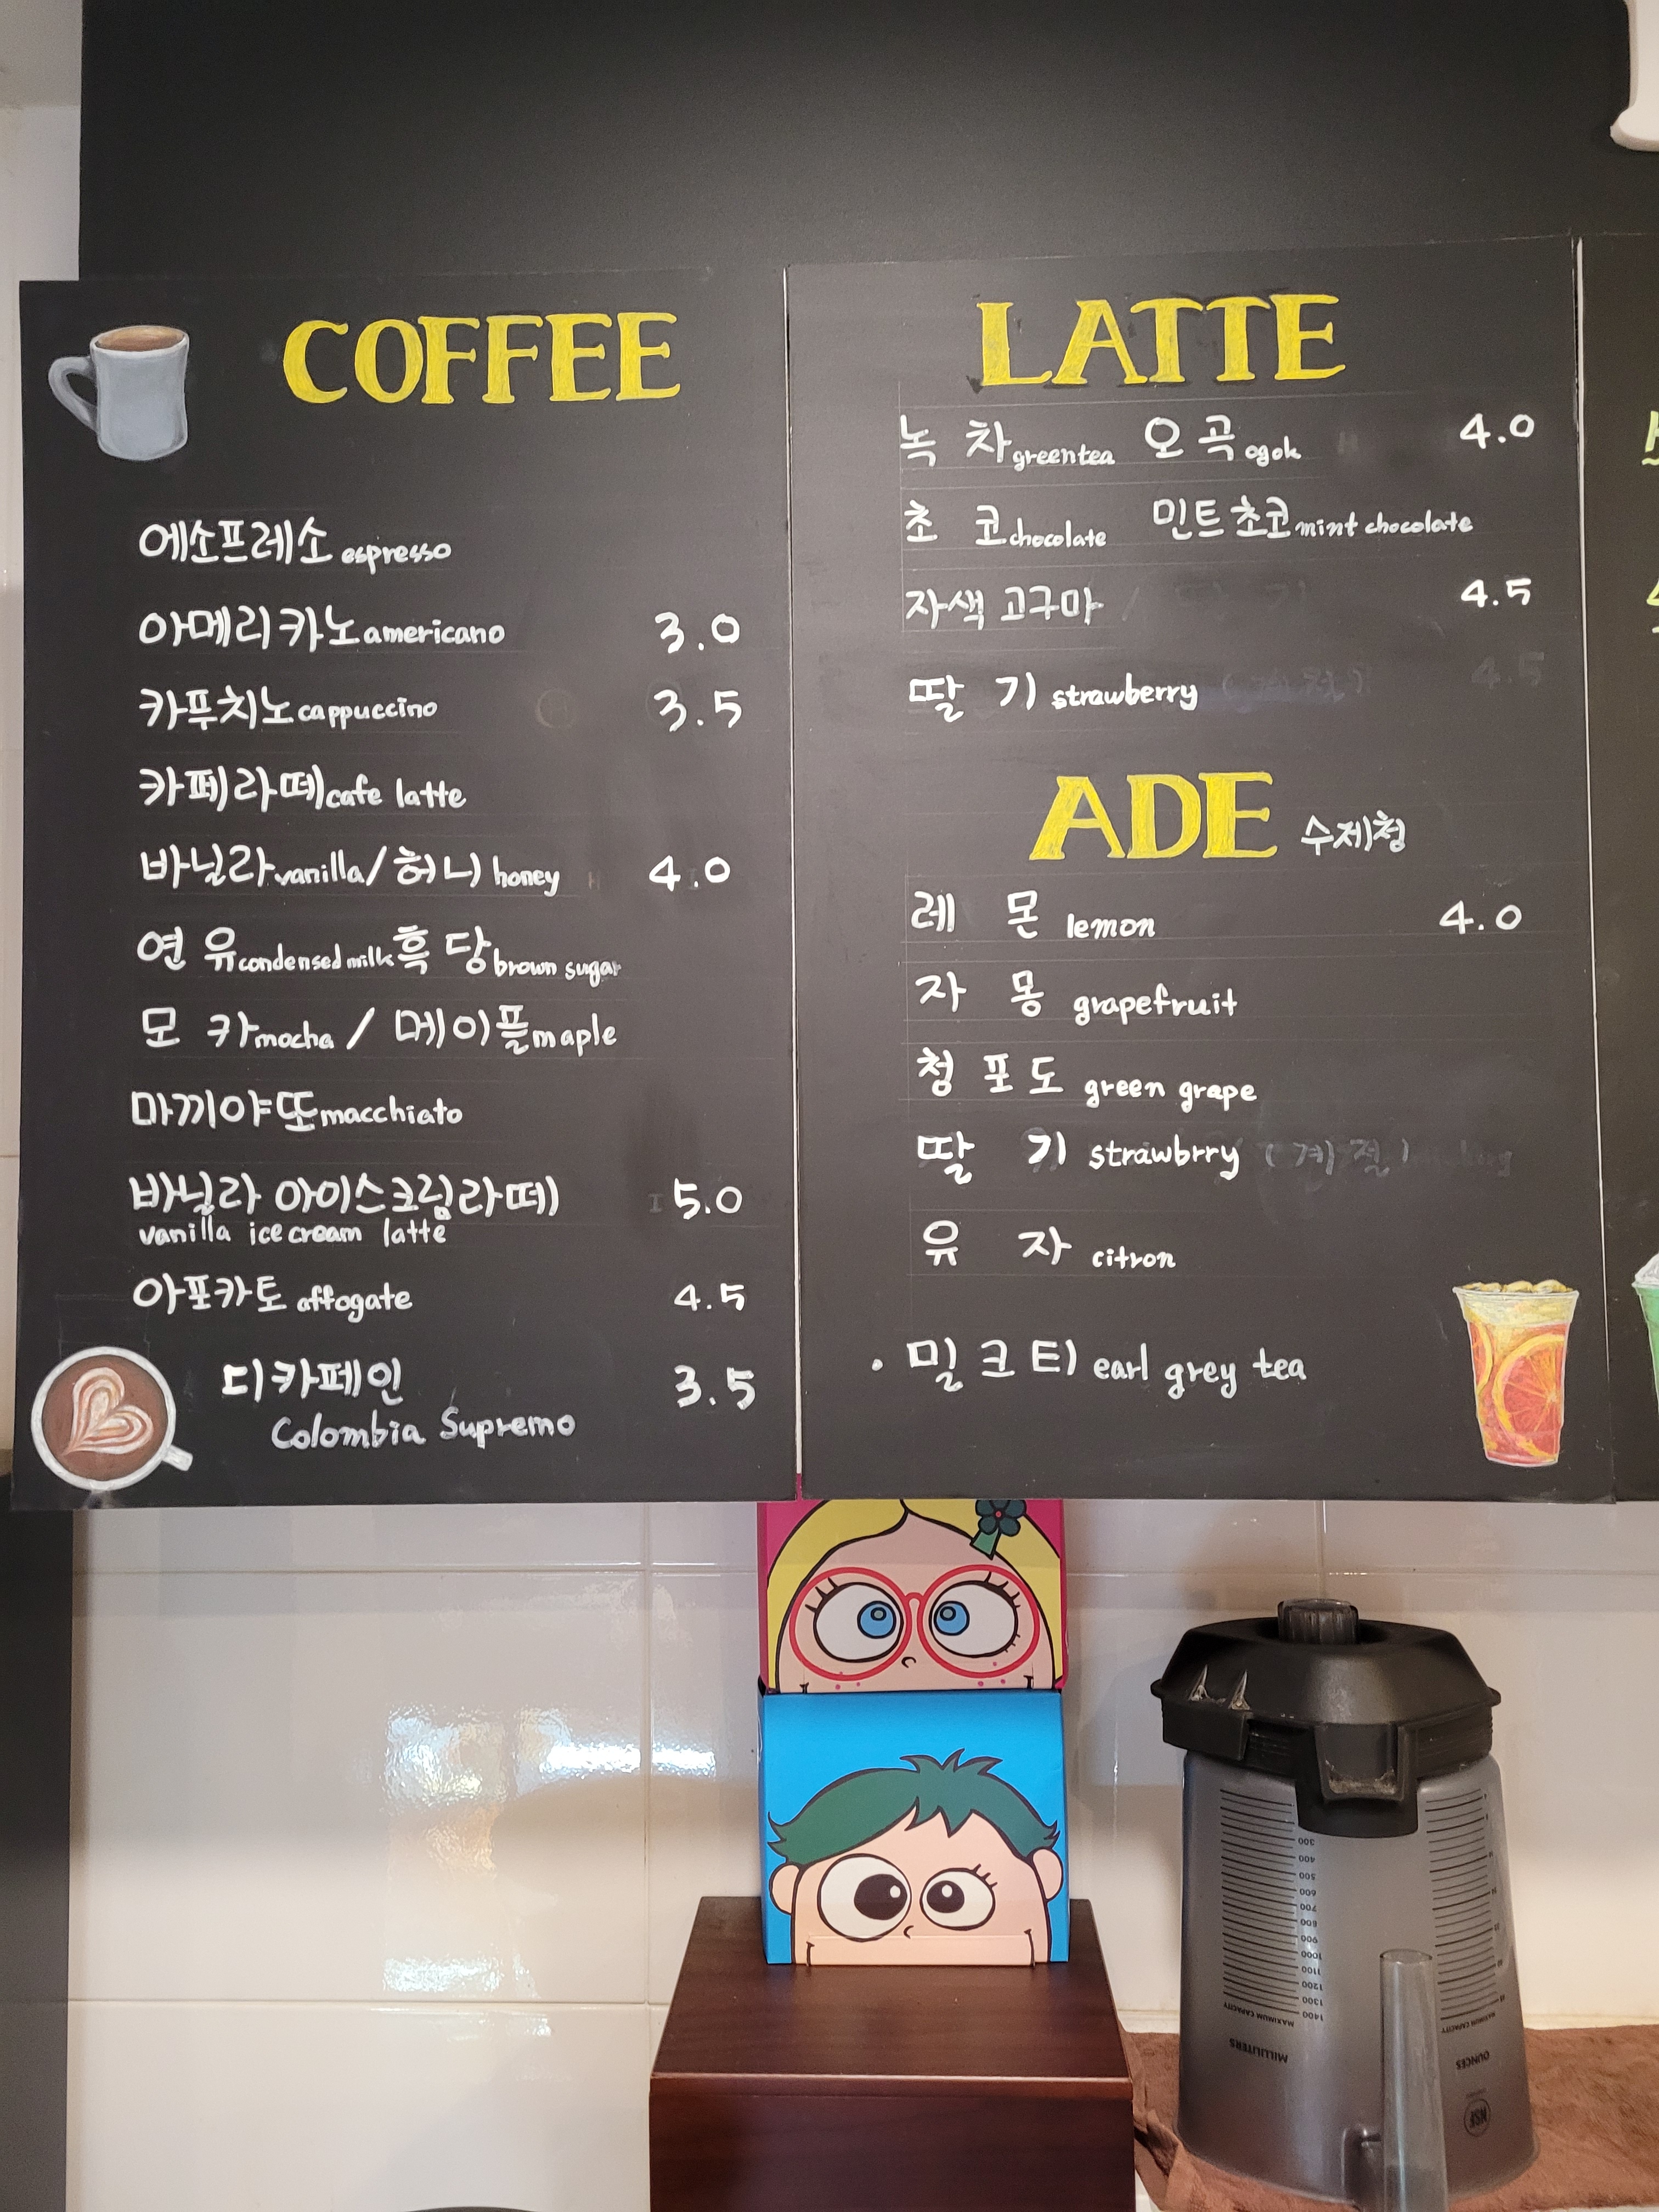 COFFEE
에소프레소 espresso
아메리카노 americano 3.0
카푸치노 cappuccino 3.5
카페라떼 cafe latte
바닐라 vanilla / 허니 honey 4.0
연 유 condensed milk 흑 당 brown sugar
모 카 mocha / 메이플 maple
마끼야또 macchiato
바닐라 아이스크림라떼 5.0
vanilla ice cream latte
아포카토 affogate 4.5
디카페인 3.5
Colombia Supremo
LATTE
녹 차 greentea 오 곡 ogok 4.0
초 코 chocolate 민트초코 mint chocolate
자색 고구마 4.5
딸 기 strawberry
ADE 수제청
레 몬 lemon 4.0
자 몽 grapefruit
청 포 도 green grape
딸 기 strawbrry (계절)
유 자 citron
· 밀 크 티 earl grey tea
300
400
500
600
700
800
900
1000
1100
1200
1300
1400
MAXIMUM CAPACITY
MILLILITERS
MAXIMUM CAPACITY
OUNCES
NSF